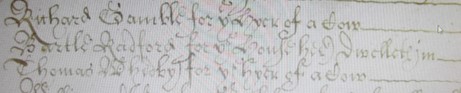 Richard Gamble for ye hyer of a Cow
Bartle Radford for ye house hee dwelleth in
Thomas for ye hyer of a Cow